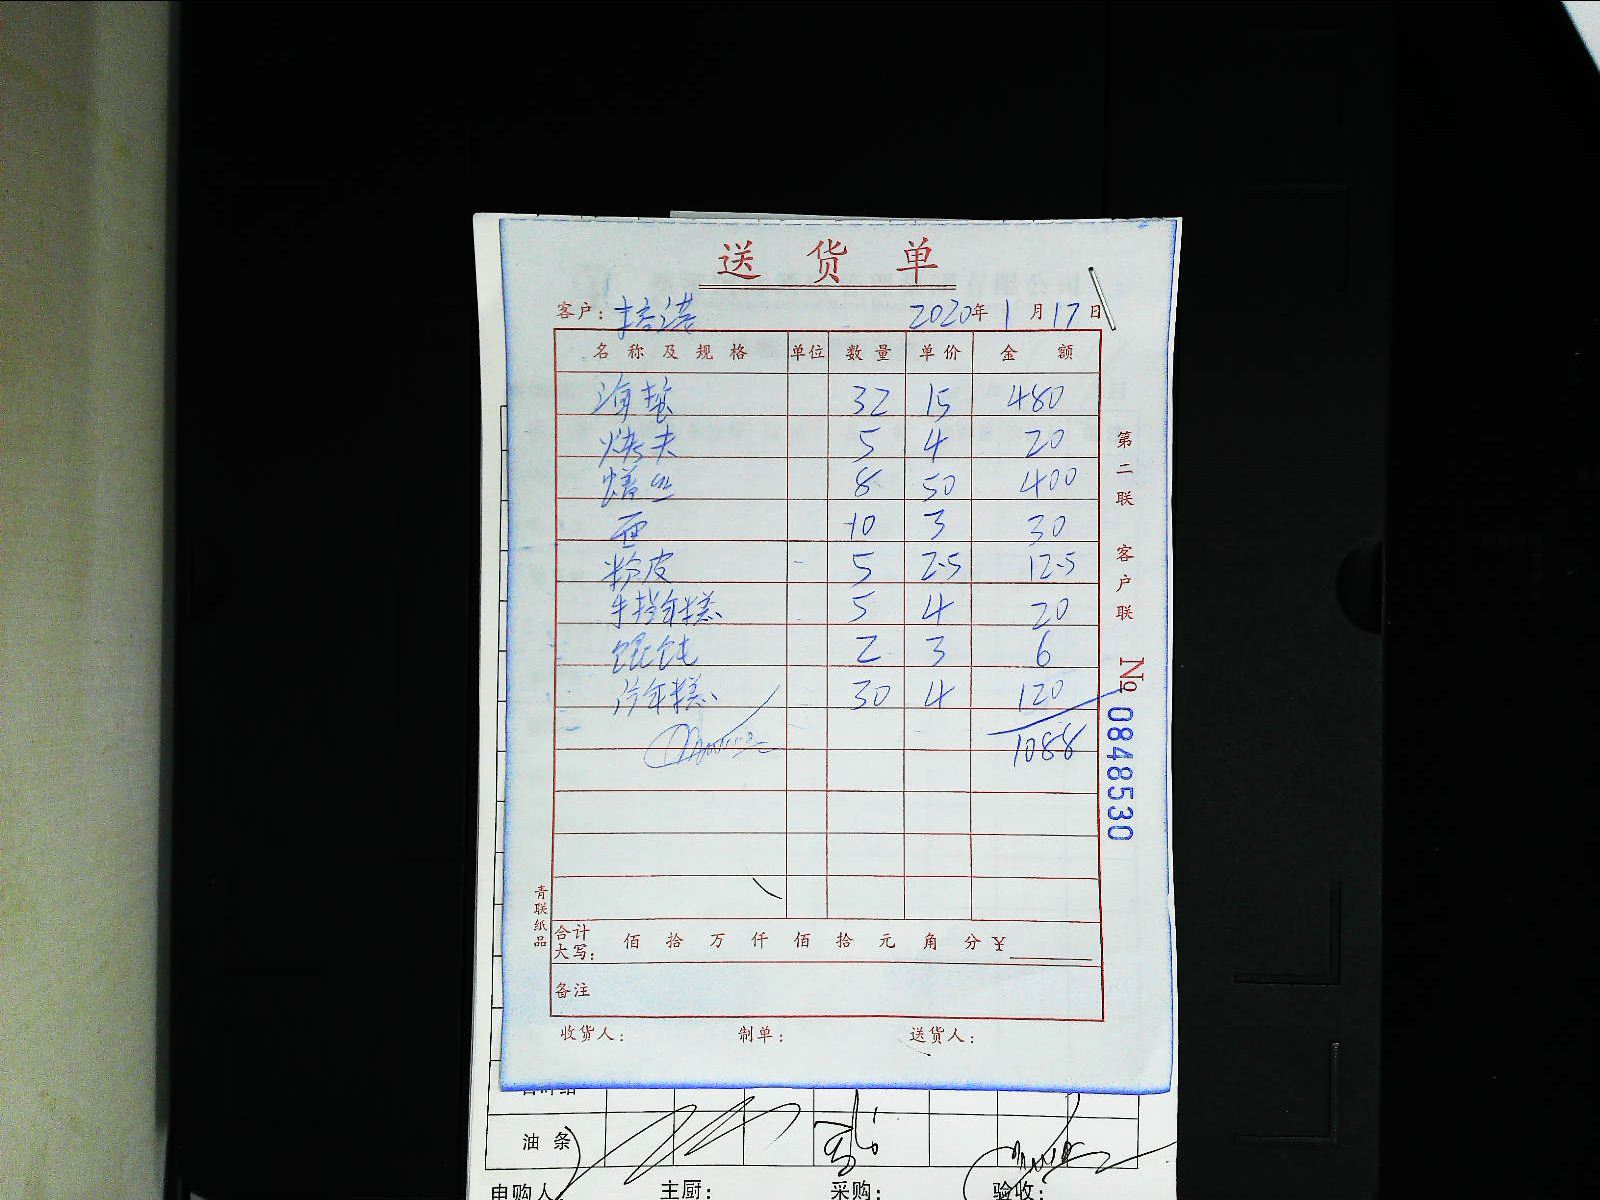 送货单
客户: 培港 2020年1月17日
名称及规格 单位 数量 单价 金额
海蜇 32 15 480
烤夫 5 4 20
鳝丝 8 50 400
面 10 3 30
粉皮 5 2.5 12.5
手指年糕 5 4 20
馄饨 2 3 6
片年糕 30 4 120
1088
合计大写: 佰拾万仟佰拾元角分¥
备注
收货人: 制单: 送货人:
第二联 客户联
No 0848530
青联纸品
油条
申购人 主厨: 采购: 验收: